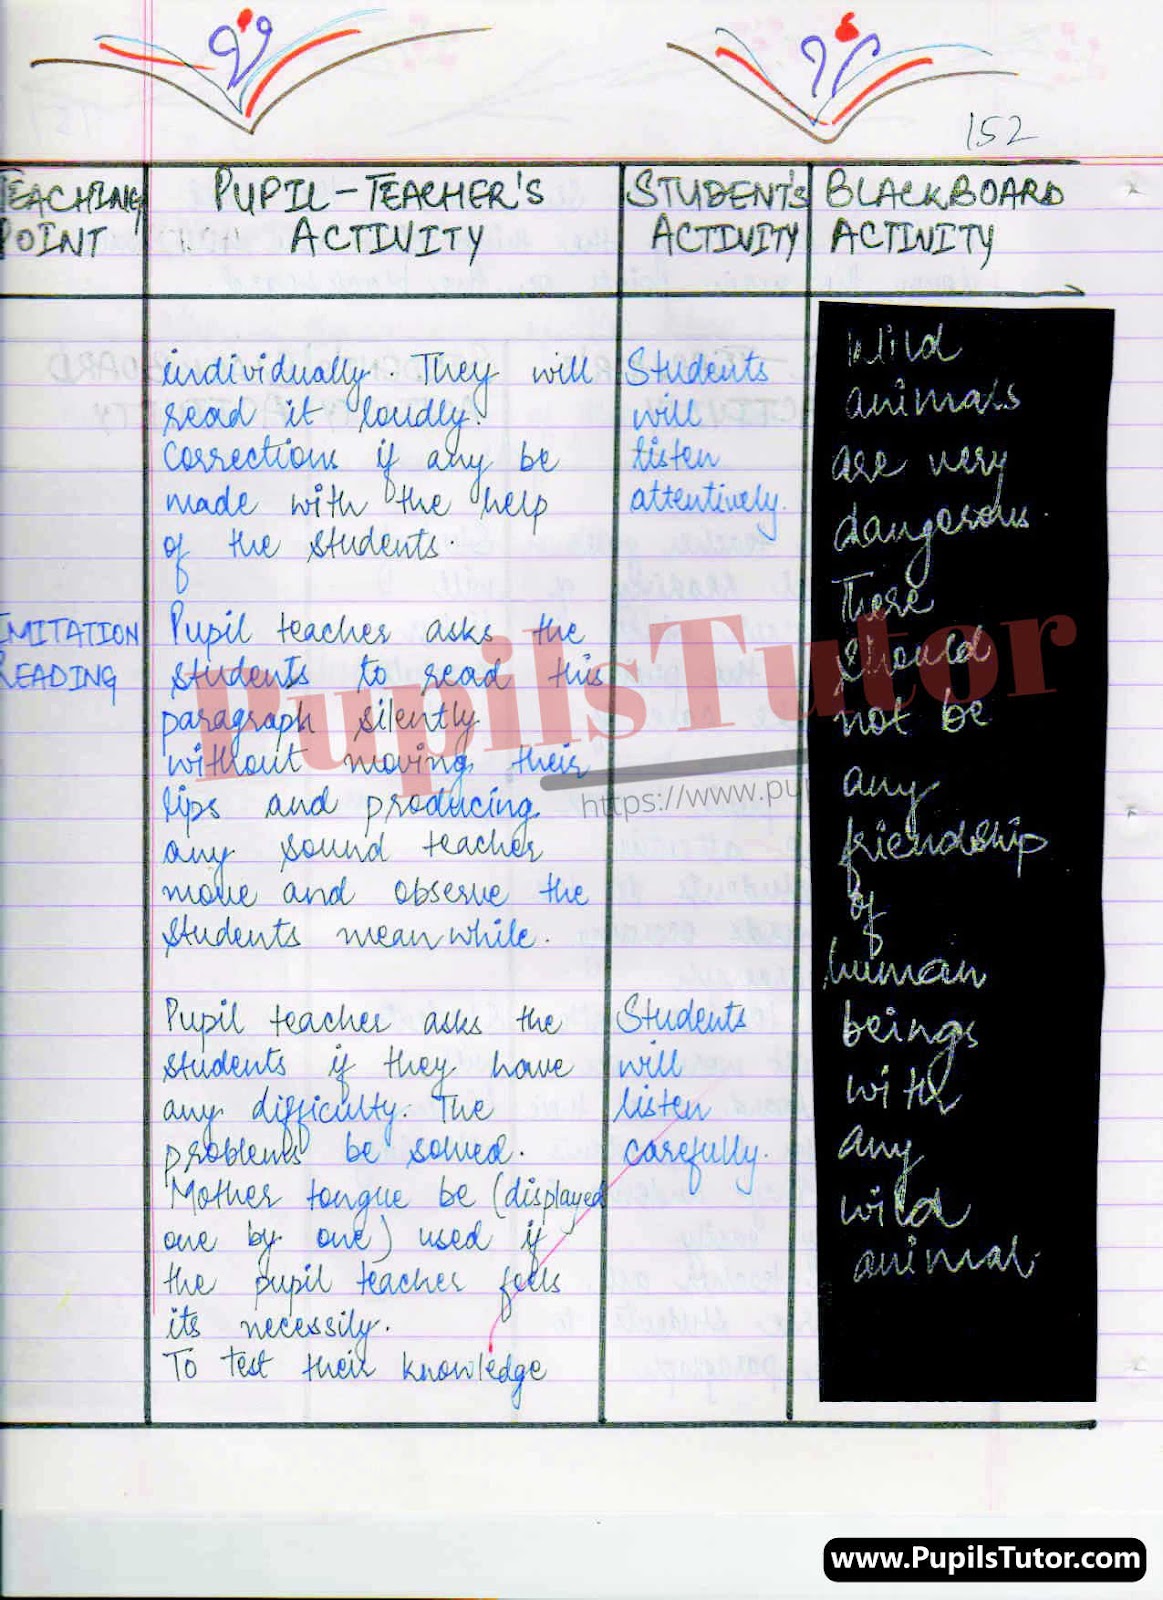 152
TEACHING POINT
PUPIL-TEACHER'S ACTIVITY
STUDENT'S ACTIVITY
BLACKBOARD ACTIVITY
individually. They will
read it loudly.
Corrections if any be
made with the help
of the students.
Students
will
listen
attentively.
IMITATION
READING
Pupil teacher asks the
students to read this
paragraph silently
without moving their
lips and producing
any sound teacher
move and observe the
students meanwhile.
Pupil teacher asks the
students if they have
any difficulty. The
problems be solved.
Mother tongue be (displayed
one by one) used if
the pupil teacher feels
its necessily.
To test their knowledge
Students
will
listen
carefully.
Wild
animals
are very
dangerous.
There
should
not be
any
friendship
of
human
beings
with
any
wild
animal.
PupilsTutor
https://www.pu
www.PupilsTutor.com